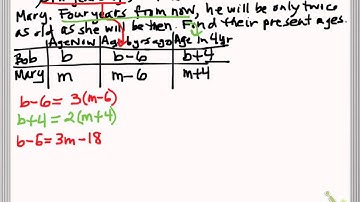 Mary. Four years from now, he will be only twice
as old as she will be then. Find their present ages.
Age Now Age 6 yrs ago Age in 4 yr
Bob b b-6 b+4
Mary m m-6 m+4
b-6 = 3(m-6)
b+4 = 2(m+4)
b-6 = 3m-18